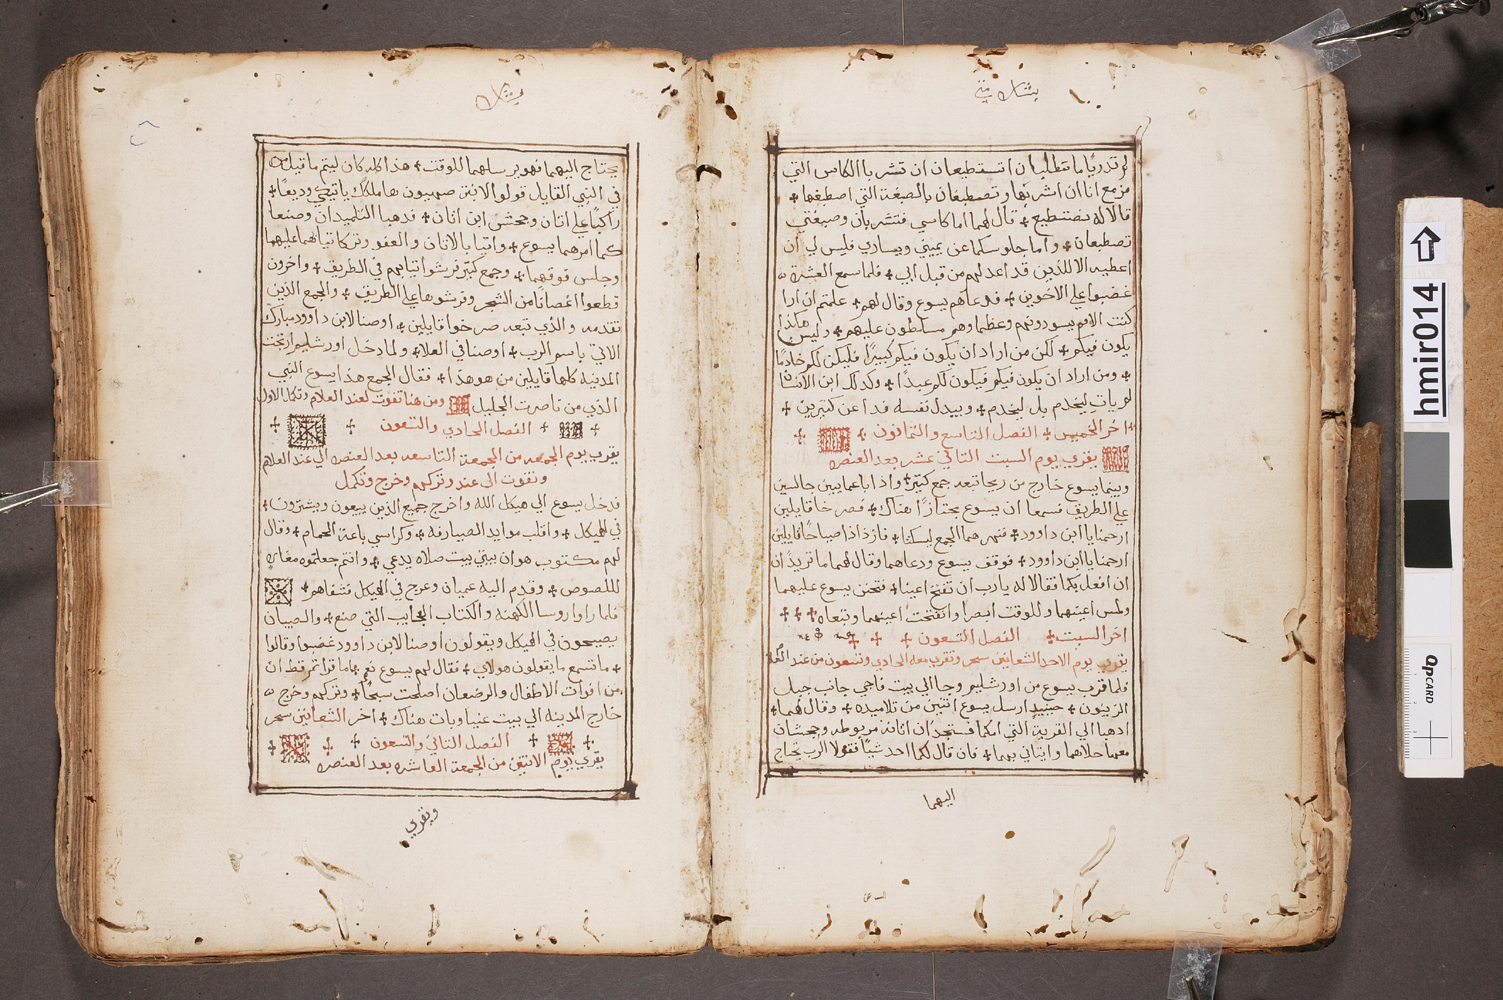 بشارة متى
لم تدريا ما تطلبان اتستطيعان ان تشربا الكاس التي
مزمع انا ان اشربها وتصطبغان بالصبغة التي اصطبغها
قالا له نستطيع قال لهما اما كاسي فتشربان وصبغتي
تصطبغان واما جلوسكما عن يميني ويساري فليس لي ان
اعطيه الا للذين قد اعد لهم من قبل ابي فلما سمع العشرة
غضبوا علي الاخوين فدعاهم يسوع وقال لهم علمتم ان اراا
كنت الامم يسودونهم وعظماوهم مسلطون عليهم وليس هاكذا
يكون فيكم لكن من اراد ان يكون فيكم كبيرًا فليكن لكم خادمًا
ومن اراد ان يكون فيكم فيكون لكم عبدًا وكذلك ابن الانسان
لم يات ليخدم بل ليخدم ويبدل نفسه فدا عن كتيرين
اخر الخميس الفصل التاسع والتمانون
يقري يوم السبت التاني عشر بعد العنصره
وبينما يسوع خارج من ريحا تبعه جمع كتير واذا باعمايين جالسين
علي الطريق فسمعا ان يسوع مجتازًا هناك فصرخا قايلين
ارحمنا يا ابن داوود فنهرهما الجمع ليسكتا فازدادا صياحًا قايلين
ارحمنا يا ابن داوود فوقف يسوع ودعاهما وقال لهما ما تريدان
ان افعل بكما فقالا له يارب ان تفتح اعيننا فتحنن يسوع عليهما
ولمس اعينهما وللوقت ابصرا وانفتحت اعينهما وتبعاه
اخر السبت الفصل التسعون
يقري يوم الاحد الشعانين سحر وتقرب معه الحادي وتسعون من عند العلام
فلما قرب يسوع من اورشليم وجا الي بيت فاجي جانب جبل
الزيتون حينيدٍ ارسل يسوع اتنين من تلاميذه وقال لهما
ادهبا الي القرية التي امامكما فستجدان اتانه مربوطه وجحشان
معها حلاهما وايتاني بهما فان قال لكما احد شيًا فقولا الرب يحتاج
اليهما
بشارة
يحتاج اليهما فهو يرسلهما للوقت هدا كله كان ليتم ما قيل
في النبي القايل قولوا لابنة صهيون ها ملكك ياتيكي وديعًا
راكبًا علي اتان وجحش ابن اتان فدهبا التلميدان وصنعا
كما امرهما يسوع واتيا بالاتان والعفو وتركا تيابهما عليهما
وجلس فوقهما وجمع كتير فرشوا تيابهم في الطريق واخرون
قطعوا اغصانا من الشجر وفرشوها علي الطريق والجمع الذين
تقدمه والذي تبعه صرخوا قايلين اوصنا لابن داوود مبارك
الاتي باسم الرب اوصنا في العلا ولما دخل اورشليم ارتجت
المدينه كلها قايلين من هو هذا فقال الجمع هذا يسوع النبي
الذي من ناصرت الجليل ومن هنا تفوت لعند العلام وتكل الاول
الفصل الحادي والتسعون
يقري يوم الجمعه من الجمعة التاسعه بعد العنصره الي عند العلام
وتفوت الي عند وتركهم وخرج وتكمل
فدخل يسوع الي هيكل الله واخرج جميع الذين يبيعون ويشترون
في الهيكل واقلب موايد الصيارفه وكراسي باعة الحمام وقال
لهم مكتوب هو ان بيتي بيت صلاه يدعي وانتم جعلتموه مغاره
للصوص وقدم اليه عميان وعرج في الهيكل فشفاهم
فلما راوا روسا الكهنه والكتاب العجايب التي صنع والصبيان
يصيحون في الهيكل ويقولون اوصنا لابن داوود غضبوا وقالوا
ما تسمع ما يقولون هولاي فقال لهم يسوع نعم اما قراتم قط ان
من افوات الاطفال والرضعان اصلحت سبحًا وتركهم وخرج
خارج المدينه الي بيت عنيا وبات هناك اخر الشعانين سحر
الفصل التاني والتسعون
يقري يوم الاتنين من الجمعة العاشره بعد العنصره
ويقري
hmir014
QpCARD